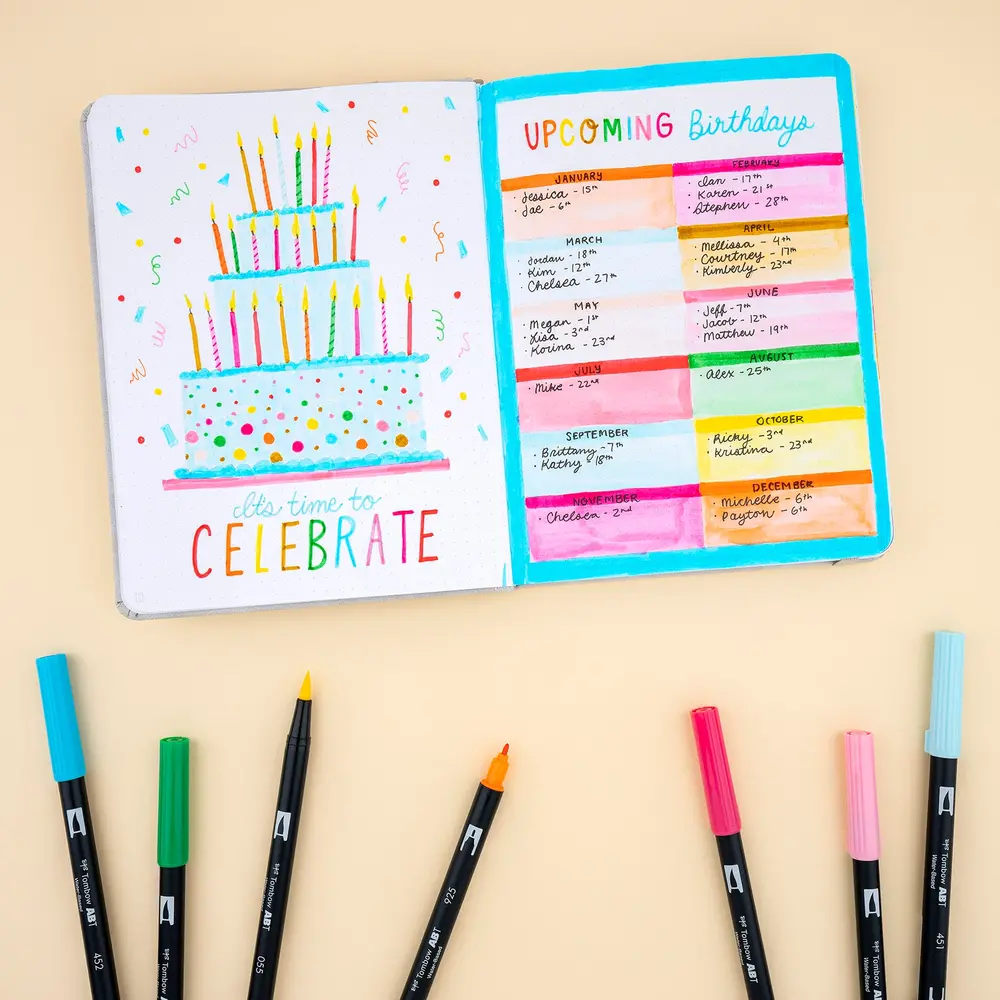 It's time to
CELEBRATE
UPCOMING Birthdays
JANUARY
· Jessica - 15th
· Jae - 6th
FEBRUARY
· Ian - 17th
· Karen - 21st
· Stephen - 28th
MARCH
· Jordan - 18th
· Kim - 12th
· Chelsea - 27th
APRIL
· Mellissa - 4th
· Courtney - 17th
· Kimberly - 23rd
MAY
· Megan - 1st
· Lisa - 3rd
· Korina - 23rd
JUNE
· Jeff - 7th
· Jacob - 12th
· Matthew - 19th
JULY
· Mike - 22nd
AUGUST
· Alex - 25th
SEPTEMBER
· Brittany - 7th
· Kathy - 18th
OCTOBER
· Ricky - 3rd
· Kristina - 23rd
NOVEMBER
· Chelsea - 2nd
DECEMBER
· Michelle - 6th
· Payton - 6th
Tombow ABT
Water-Based
452
Tombow ABT
Water-Based
Tombow ABT
055
925
Tombow ABT
Water-Based
Tombow ABT
Water-Based
Tombow ABT
Water-Based
Tombow ABT
Water-Based
451